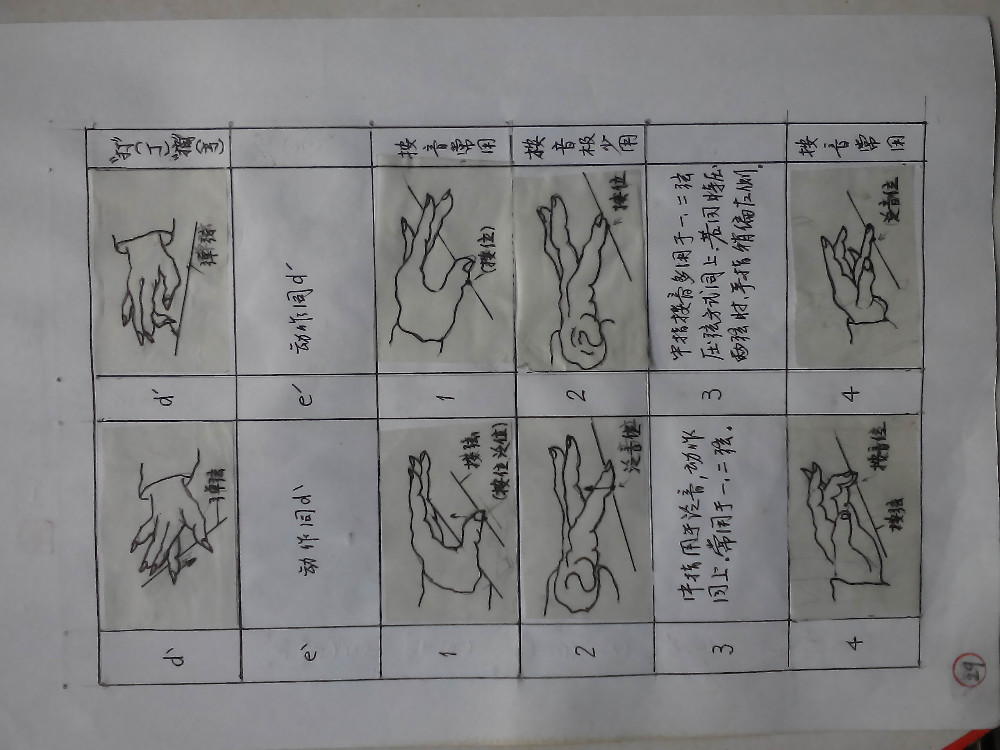 d`
弹弦
d´
弹弦
"打"(丁)"摘"(乇)
e`
动作同d`
e´
动作同d´
1
按弦
(按位泛位)
1
(按位)
按音常用
2
泛音位
2
按位
按音极少用
3
中指用于泛音,动作
同上.常用于一、二弦。
3
中指按音多用于一、二弦
压弦方式同上.若同时压
两弦时,手指稍偏左侧.
4
按音位
按弦
4
泛音位
按音常用
29